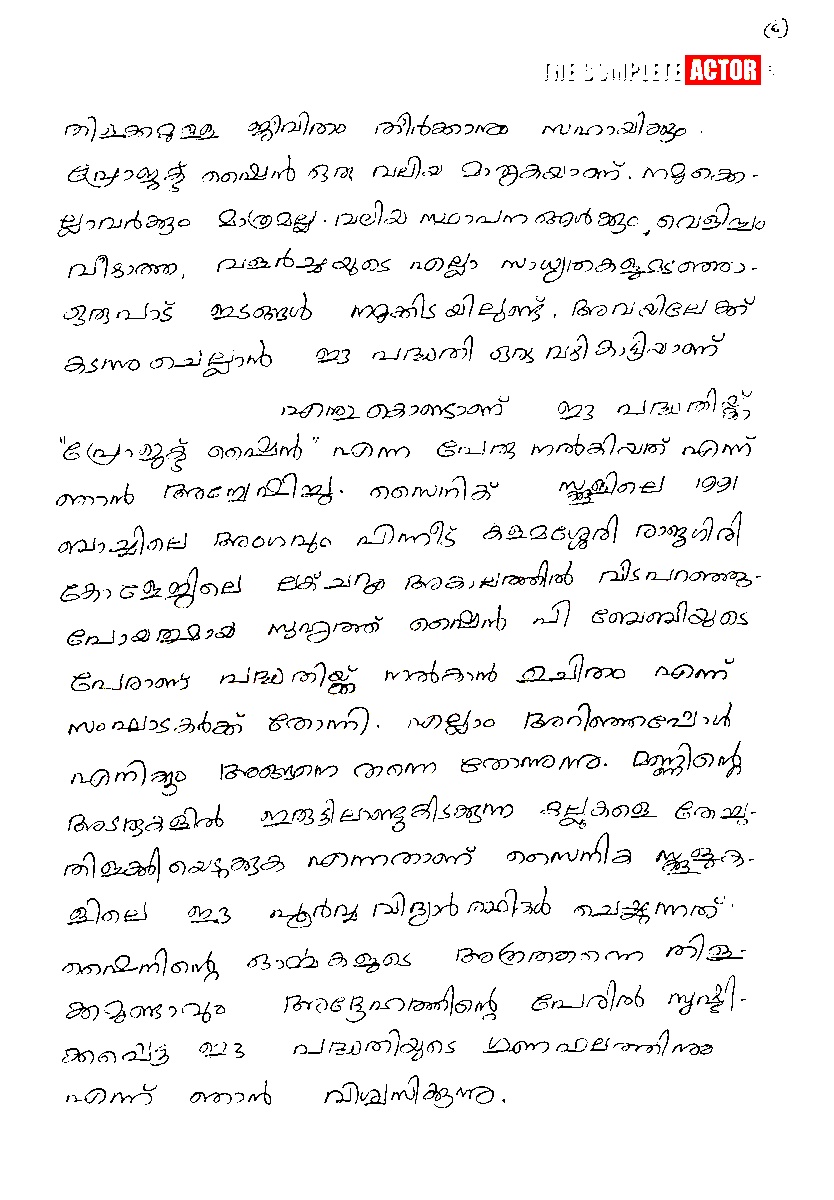 (6)
THE COMPLETE ACTOR
തിളക്കമുള്ള ജീവിതം തീർക്കാനും സഹായിക്കും.
പ്രോജക്ട് ഷൈൻ ഒരു വലിയ മാതൃകയാണ്. നമുക്കെ-
ല്ലാവർക്കും മാത്രമല്ല. വലിയ സ്ഥാപനങ്ങൾക്കും, വെളിച്ചം
വീഴാത്ത, വളർച്ചയുടെ എല്ലാ സാധ്യതകളുമടങ്ങിയ
ഒരുപാട് ഇടങ്ങൾ നമുക്കിടയിലുണ്ട്. അവയിലേക്ക്
കടന്നു ചെല്ലാൻ ഈ പദ്ധതി ഒരു വഴികാട്ടിയാണ്
എന്തു കൊണ്ടാണ് ഈ പദ്ധതിയ്ക്ക്
"പ്രോജക്ട് ഷൈൻ" എന്ന പേരു നൽകിയത് എന്ന്
ഞാൻ അന്വേഷിച്ചു. സൈനിക് സ്കൂളിലെ 1991
ബാച്ചിലെ അംഗവും പിന്നീട് കളമശ്ശേരി രാജഗിരി
കോളേജിലെ ലക്ചററും അകാലത്തിൽ വിടപറഞ്ഞു-
പോയതുമായ സുഹൃത്ത് ഷൈൻ പി ബേബിയുടെ
പേരാണു പദ്ധതിയ്ക്ക് നൽകാൻ ഉചിതം എന്ന്
സംഘാടകർക്ക് തോന്നി. എല്ലാം അറിഞ്ഞപ്പോൾ
എനിക്കും അങ്ങനെ തന്നെ തോന്നുന്നു. മണ്ണിന്റെ
അടരുകളിൽ ഇരുട്ടിലാണ്ടുകിടക്കുന്ന കല്ലുകളെ തേച്ചു-
തിളക്കിയെടുക്കുക എന്നതാണ് സൈനിക സ്കൂളുക-
ളിലെ ഈ പൂർവ്വ വിദ്യാർത്ഥികൾ ചെയ്യുന്നത്.
ഷൈനിന്റെ ഓർമ്മകളുടെ അത്രതന്നെ തിള-
ക്കമുണ്ടാവും അദ്ദേഹത്തിന്റെ പേരിൽ സൃഷ്ടി-
ക്കപ്പെട്ട ഈ പദ്ധതിയുടെ ഗുണഫലത്തിനും
എന്ന് ഞാൻ വിശ്വസിക്കുന്നു.